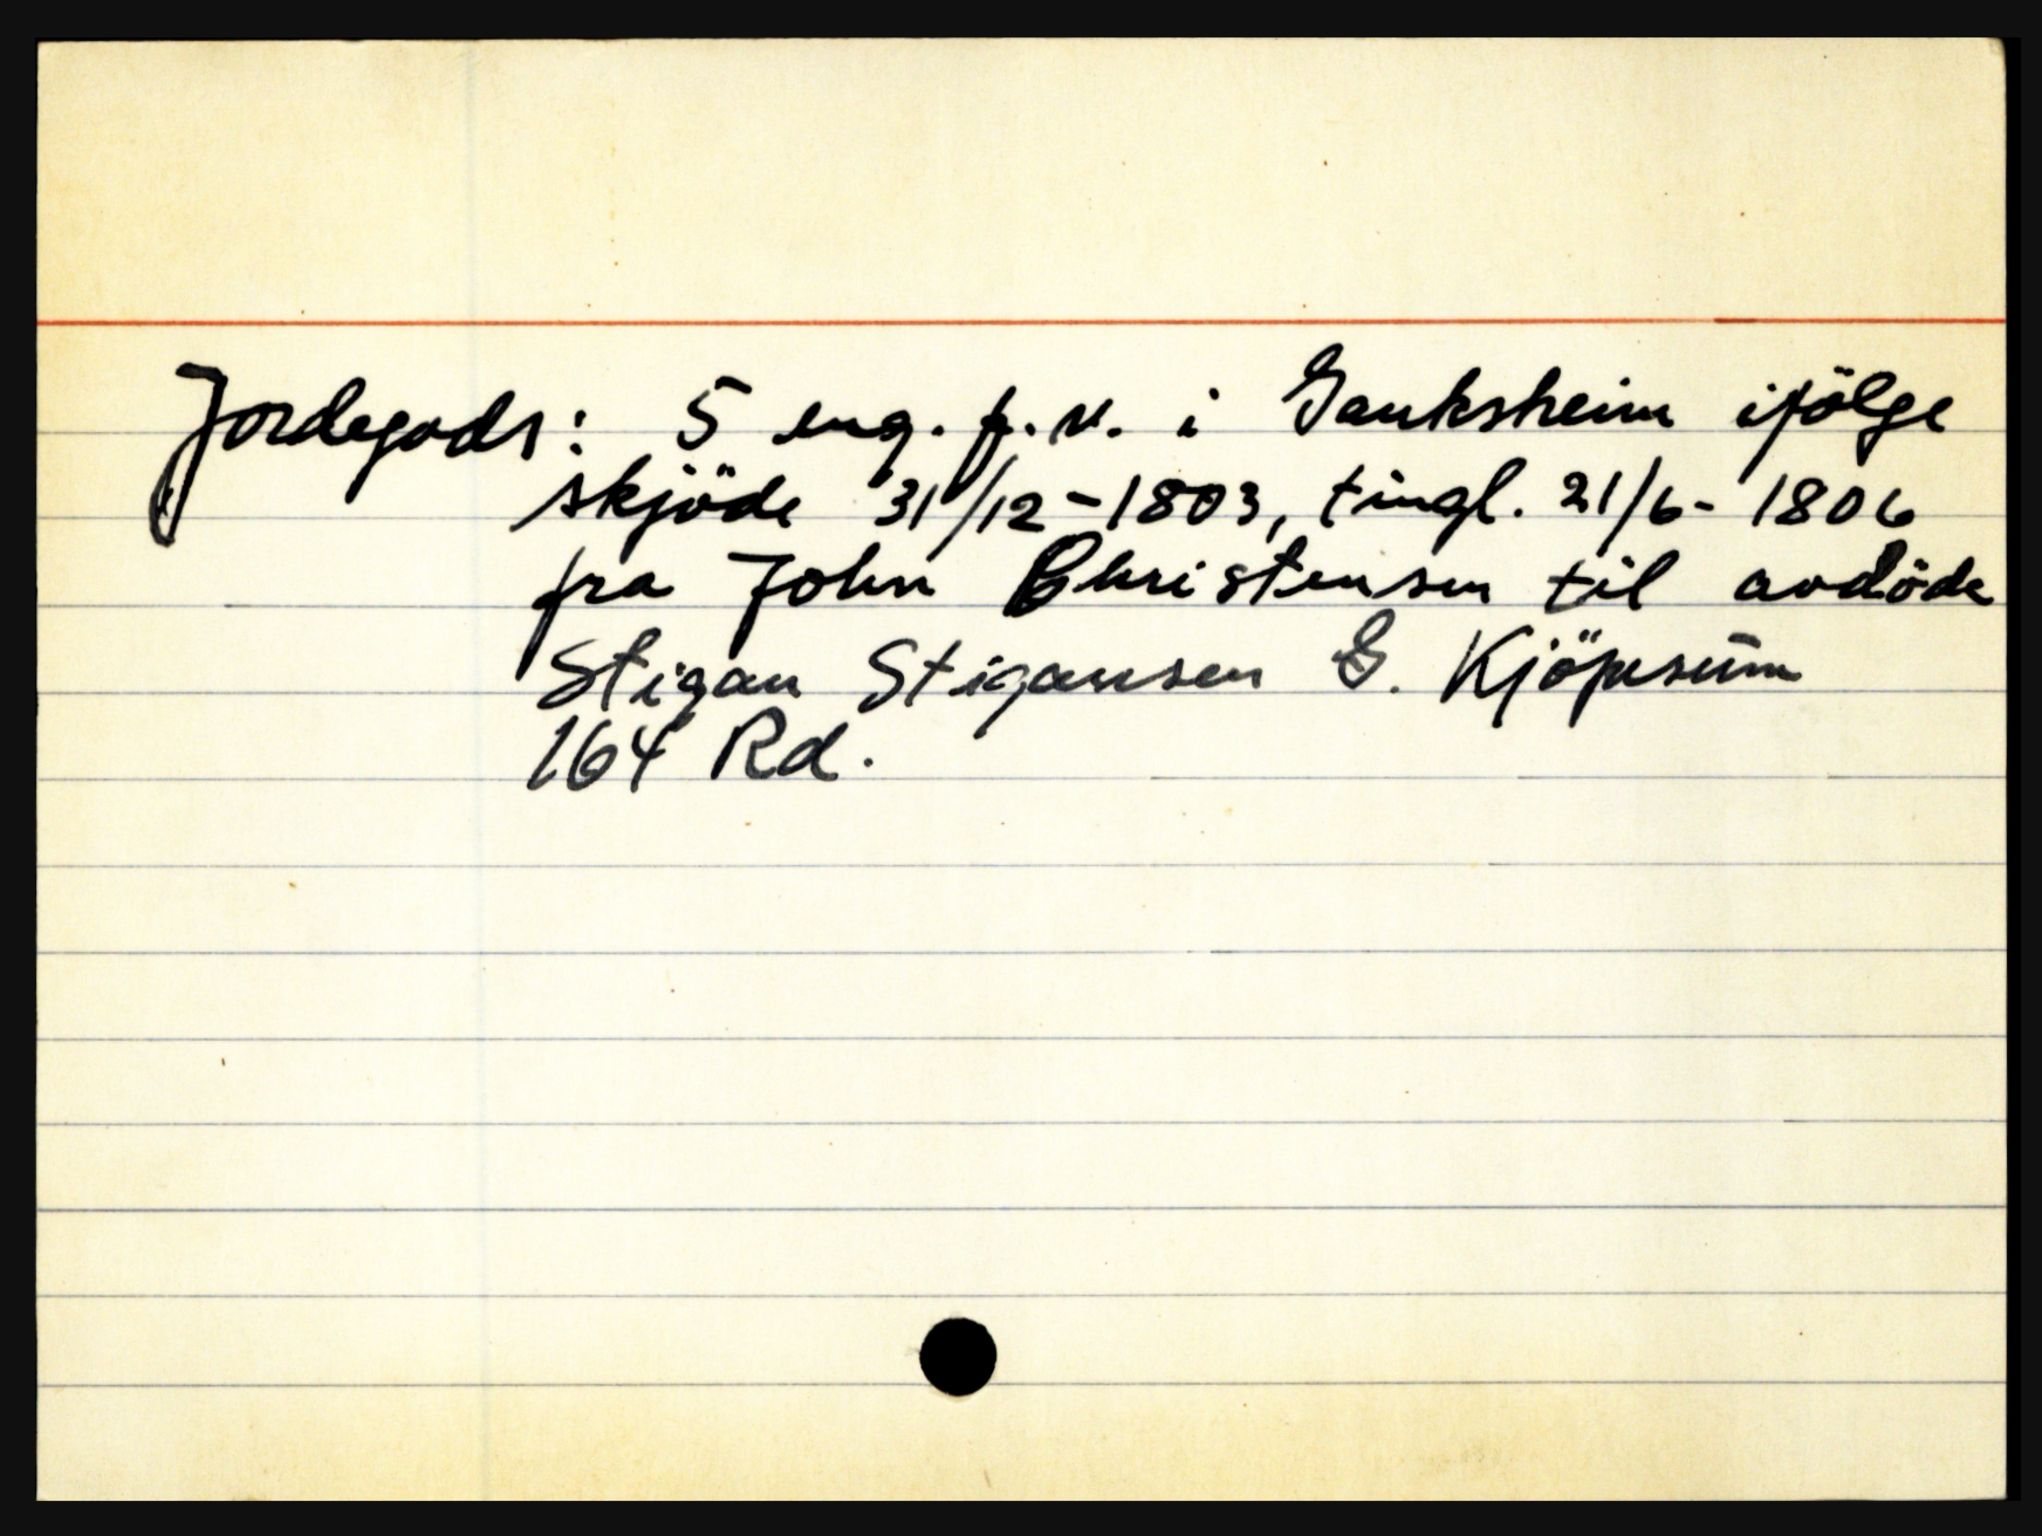 Jordegods: 5 eng. p.v. i Gauksheim ifölge
skjöde 31/12-1803, tingl. 21/6-1806
fra John Christensen til avdöde
Stigan Stigansen G. Kjöpesum
164 Rd.